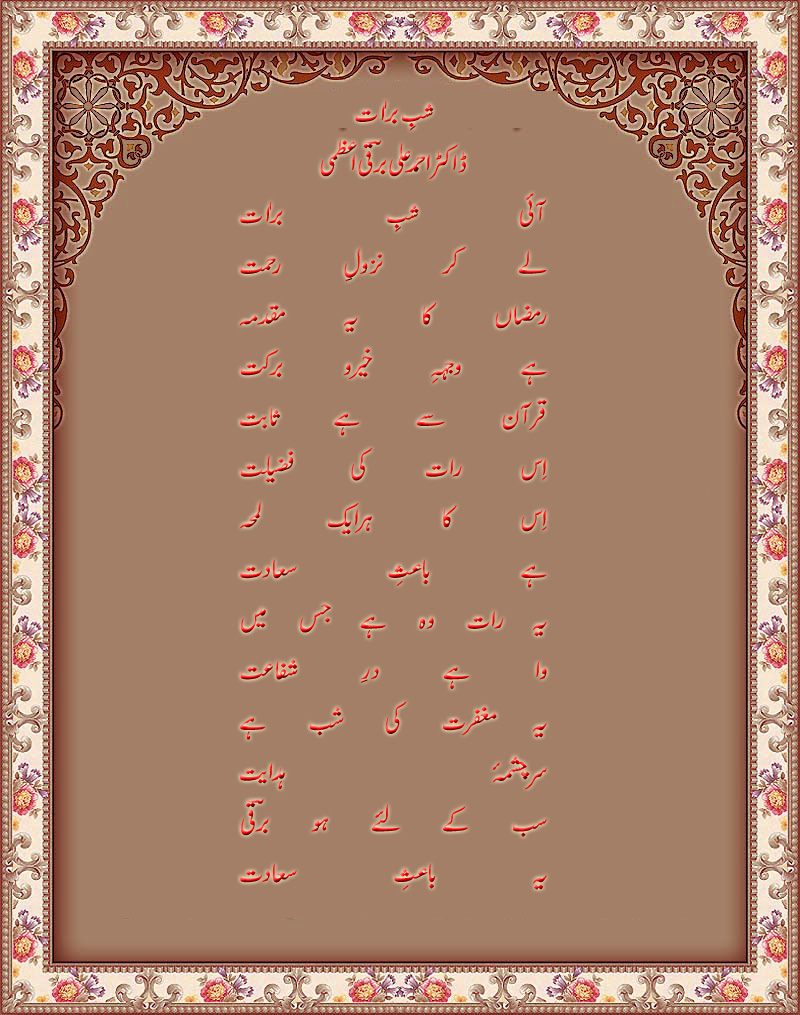 شبِ برات
ڈاکٹر احمد علی برقی اعظمی
آئی شبِ برات
لے کر نزولِ رحمت
رمضاں کا یہ مقدمہ
ہے وجہِ خیرو برکت
قرآن سے ہے ثابت
اِس رات کی فضیلت
اِس کا ہرایک لمحہ
ہے باعثِ سعادت
یہ رات وہ ہے جس میں
وا ہے درِ شفاعت
یہ مغفرت کی شب ہے
سرچشمۂ ہدایت
سب کے لئے ہو برقی
یہ باعثِ سعادت